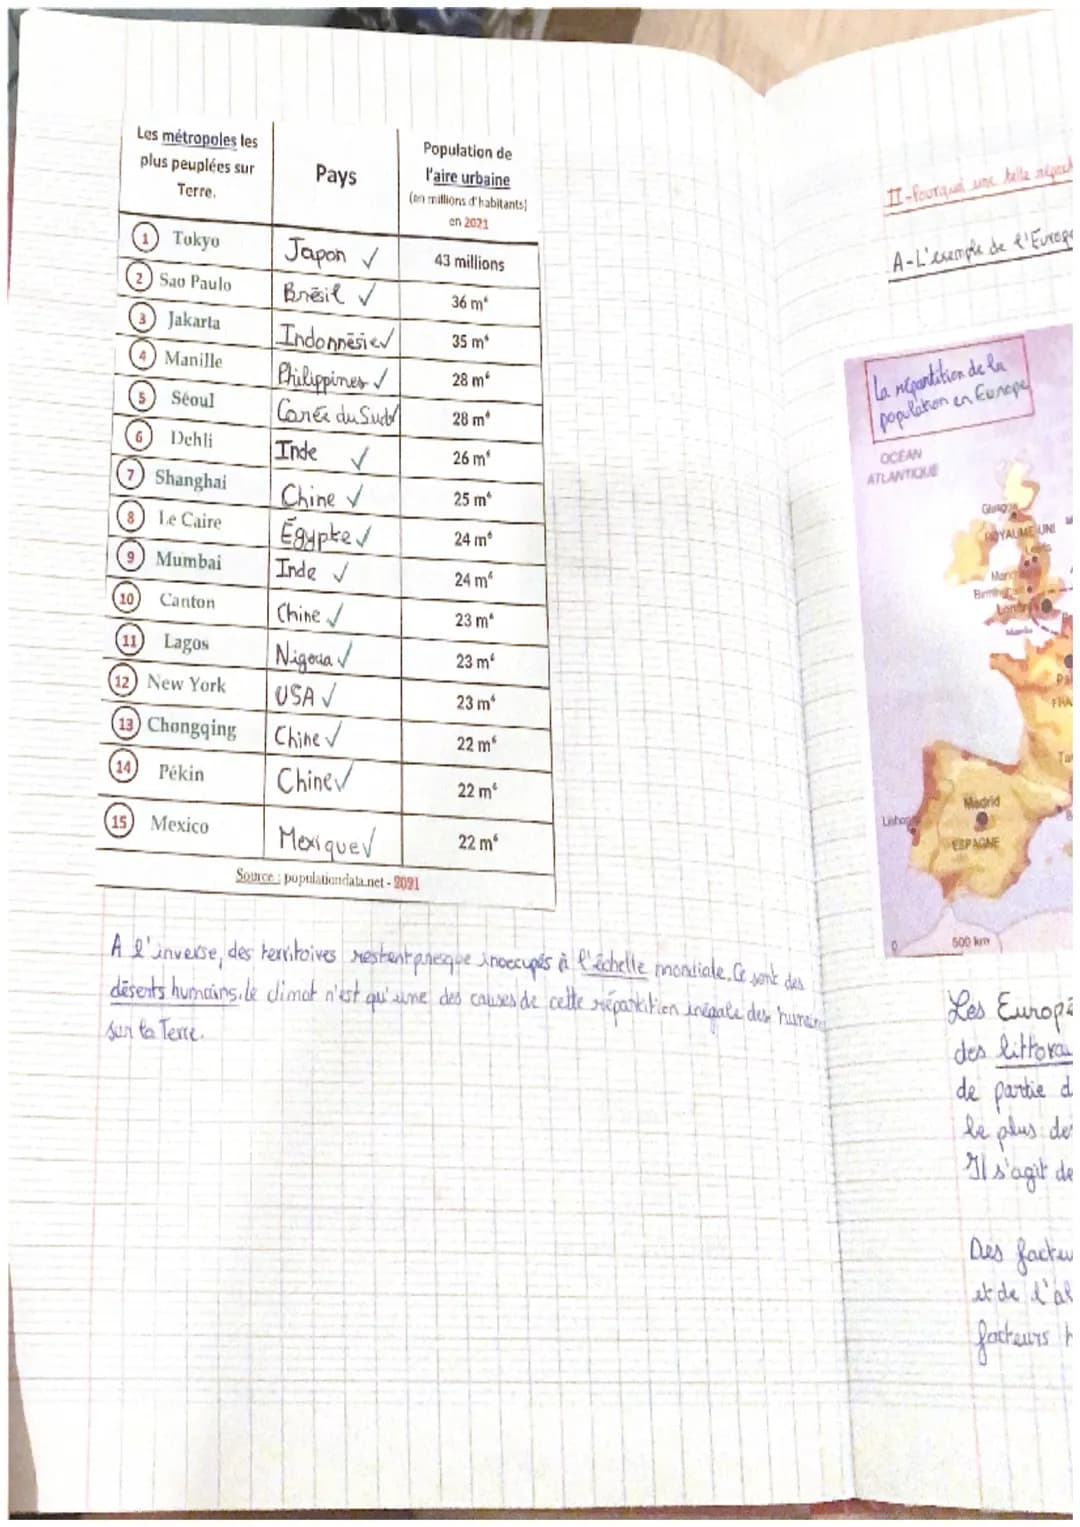 Les métropoles les
plus peuplées sur
Terre.
Pays
Population de
l'aire urbaine
(en millions d'habitants)
en 2021
1 Tokyo Japon ✓ 43 millions
2 Sao Paulo Brésil ✓ 36 m°
3 Jakarta Indonnésie ✓ 35 m°
4 Manille Philippines ✓ 28 m°
5 Séoul Corée du Sud ✓ 28 m°
6 Dehli Inde ✓ 26 m°
7 Shanghai Chine ✓ 25 m°
8 Le Caire Égypte ✓ 24 m°
9 Mumbai Inde ✓ 24 m°
10 Canton Chine ✓ 23 m°
11 Lagos Nigeria ✓ 23 m°
12 New York USA ✓ 23 m°
13 Chongqing Chine ✓ 22 m°
14 Pékin Chine ✓ 22 m°
15 Mexico Mexique ✓ 22 m°
Source : populationdata.net - 2021
A l'inverse, des territoires restent presque inoccupés à l'échelle mondiale. Ce sont des
déserts humains. Le climat n'est qu'une des causes de cette répartition inégale des humains
sur la Terre.
II - Pourquoi une telle
A - L'exemple de l'Europe
La répartition de la
population en Europe
OCÉAN
ATLANTIQUE
Glasgow
ROYAUME-UNI
Leeds
Londres
FRA
Madrid
ESPAGNE
0 500 km
Les Europé
des littorau
de partie d
le plus de
Il s'agit de
Des facteu
et de l'al
facteurs h